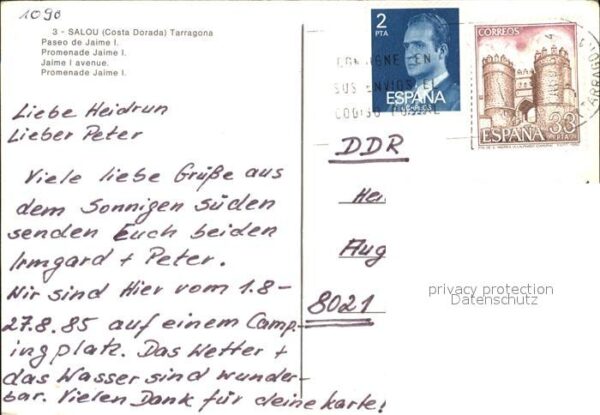 1090
3 - SALOU (Costa Dorada) Tarragona
Paseo de Jaime I.
Promenade Jaime I.
Jaime I avenue.
Promenade Jaime I.
2
PTA
ESPAÑA
CORREOS
ESPAÑA
33
PTA
CONSIGNE EN
SUS ENVIOS EL
CODIGO POSTAL
Liebe Heidrun
Lieber Peter
Viele liebe Grüße aus
dem Sonnigen süden
senden Euch beiden
Irmgard + Peter.
Wir sind Hier vom 1.8-
27.8.85 auf einem Camp-
ingplatz. Das Wetter +
das Wasser sind wunder-
bar. Vielen Dank für deine karte!
DDR
Hei
Flug
8021
privacy protection
Datenschutz